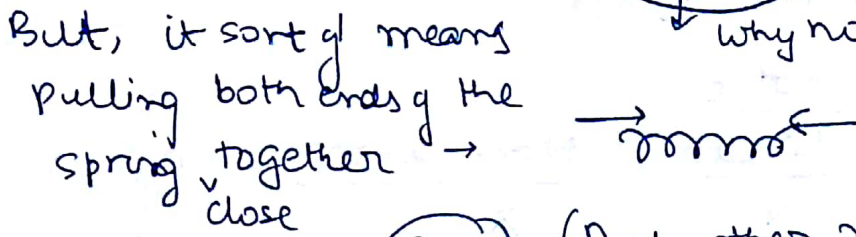 But, it sort of means
why no
pulling both ends of the
spring close together →